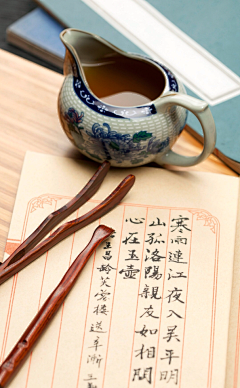 寒雨連江夜入吴平明
山孤洛陽親友如相問
心在玉壶
王昌龄芙蓉楼送辛渐